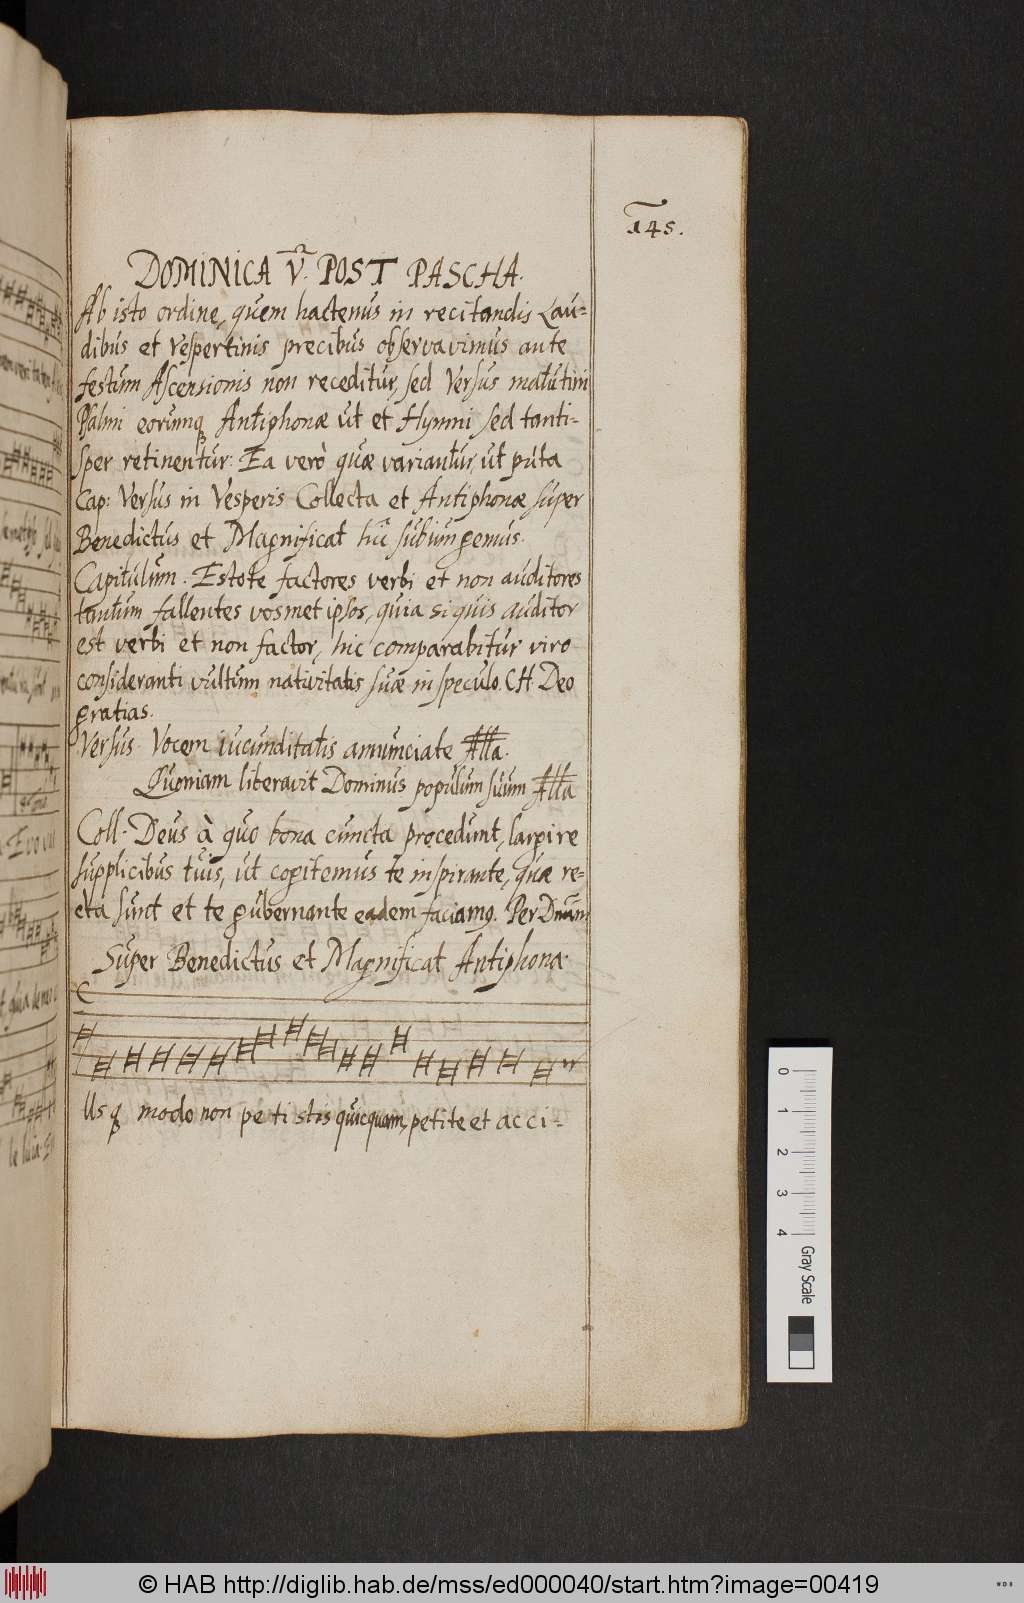 145.
DOMINICA V.ᵃ POST PASCHA.
Ab isto ordine, quem hactenus in recitandis Lau-
dibus et Vespertinis precibus observavimus ante
festum Ascensionis non receditur, sed Versus matutini
Psalmi eorumq Antiphonæ ut et Hymni sed tanti-
sper retinentur: Ea verò quæ variantur, ut puta
Cap: Versus in Vesperis Collecta et Antiphonæ super
Benedictus et Magnificat hîc subiungemus.
Capitulum. Estote factores verbi et non auditores
tantum fallentes vosmet ipsos, quia si quis auditor
est verbi et non factor, hic comparabitur viro
consideranti vultum nativitatis suæ in speculo. CH. Deo
gratias.
Versus. Vocem iucunditatis annunciate Alla.
Quoniam liberavit Dominus populum suum Alla
Coll. Deus à quo bona cuncta procedunt, largire
supplicibus tuis, ut cogitemus te inspirante, quæ re-
cta sunt et te gubernante eadem faciamꝯ. Per Dnum
Super Benedictus et Magnificat Antiphona.
C
Usq modo non pe ti stis quicquam, petite et acci-
0 1 2 3 4
Gray Scale
© HAB http://diglib.hab.de/mss/ed000040/start.htm?image=00419